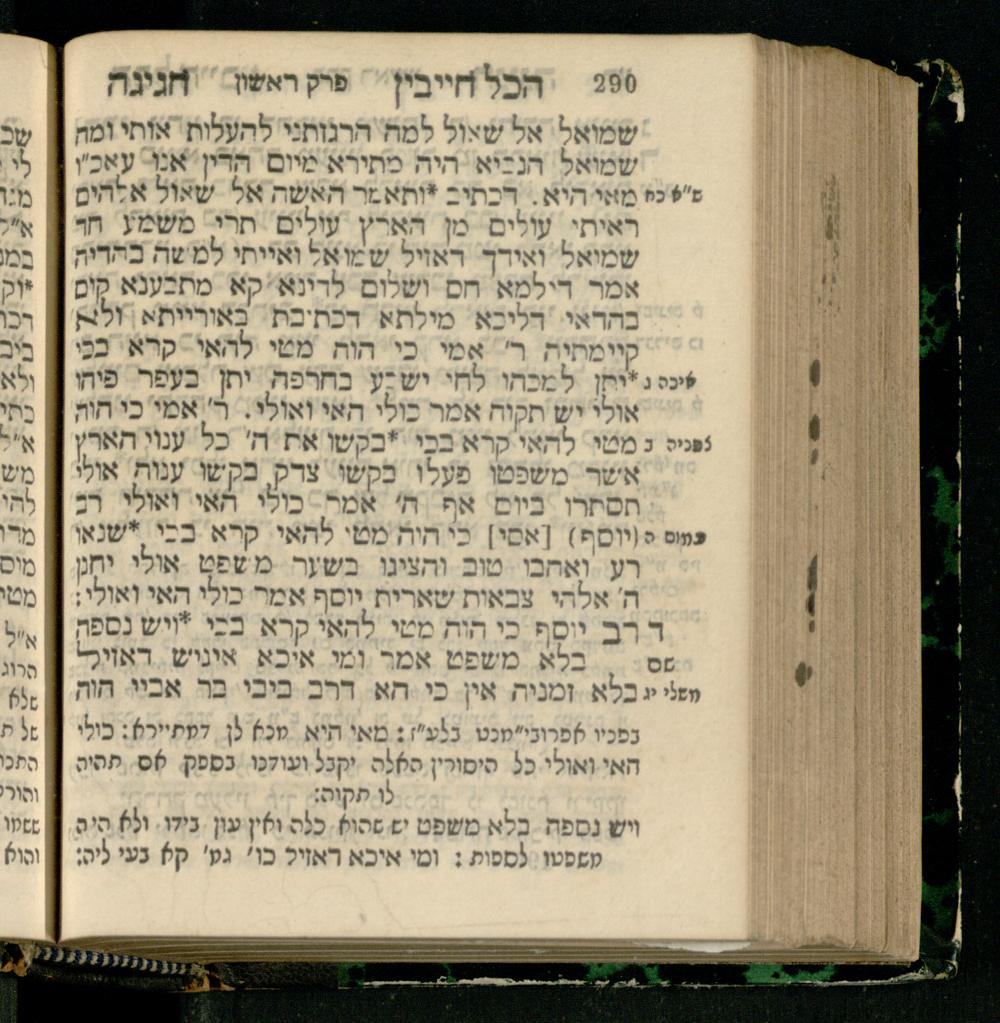 290 הכל חייבין פרק ראשון חגיגה
שמואל אל שאול למה הרגזתני להעלות אותי ומה
שמואל הנביא היה מתירא מיום הדין אנו עאכ"ו
ש"א כח מאי היא. דכתיב *ותאמר האשה אל שאול אלהים
ראיתי עולים מן הארץ עולים תרי משמע חד
שמואל ואידך דאזיל שמואל ואייתי למשה בהדיה
אמר דילמא חס ושלום לדינא קא מתבענא קום
בהדאי דליכא מילתא דכתבת באורייתא ולא
קיימתיה ר' אמי כי הוה מטי להאי קרא בכי
איכה ג *יתן למכהו לחי ישבע בחרפה יתן בעפר פיהו
אולי יש תקוה אמר כולי האי ואולי. ר' אמי כי הוה
צפניה ב מטי להאי קרא בכי *בקשו את ה' כל ענוי הארץ
אשר משפטו פעלו בקשו צדק בקשו ענוה אולי
תסתרו ביום אף ה' אמר כולי האי ואולי רב
עמוס ה (יוסף) [אסי] כי הוה מטי להאי קרא בכי *שנאו
רע ואהבו טוב והציגו בשער משפט אולי יחנן
ה' אלהי צבאות שארית יוסף אמר כולי האי ואולי:
ד רב יוסף כי הוה מטי להאי קרא בכי *ויש נספה
שם בלא משפט אמר ומי איכא איניש דאזיל
משלי יג בלא זמניה אין כי הא דרב ביבי בר אביי הוה
בפניו אפרובי"מנט בלע"ז: מאי היא מנא לן דמתיירא: כולי
האי ואולי כל היסורין האלה יקבל ועודנו בספק אם תהיה
לו תקוה:
ויש נספה בלא משפט יש שהוא כלה ואין עון בידו ולא היה
משפטו לספות: ומי איכא דאזיל כו' גמ' קא בעי ליה: